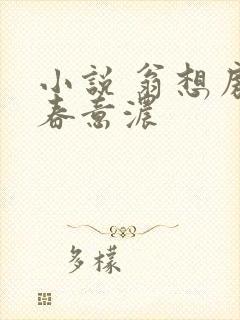 小說 翁想
春意濃
多樣